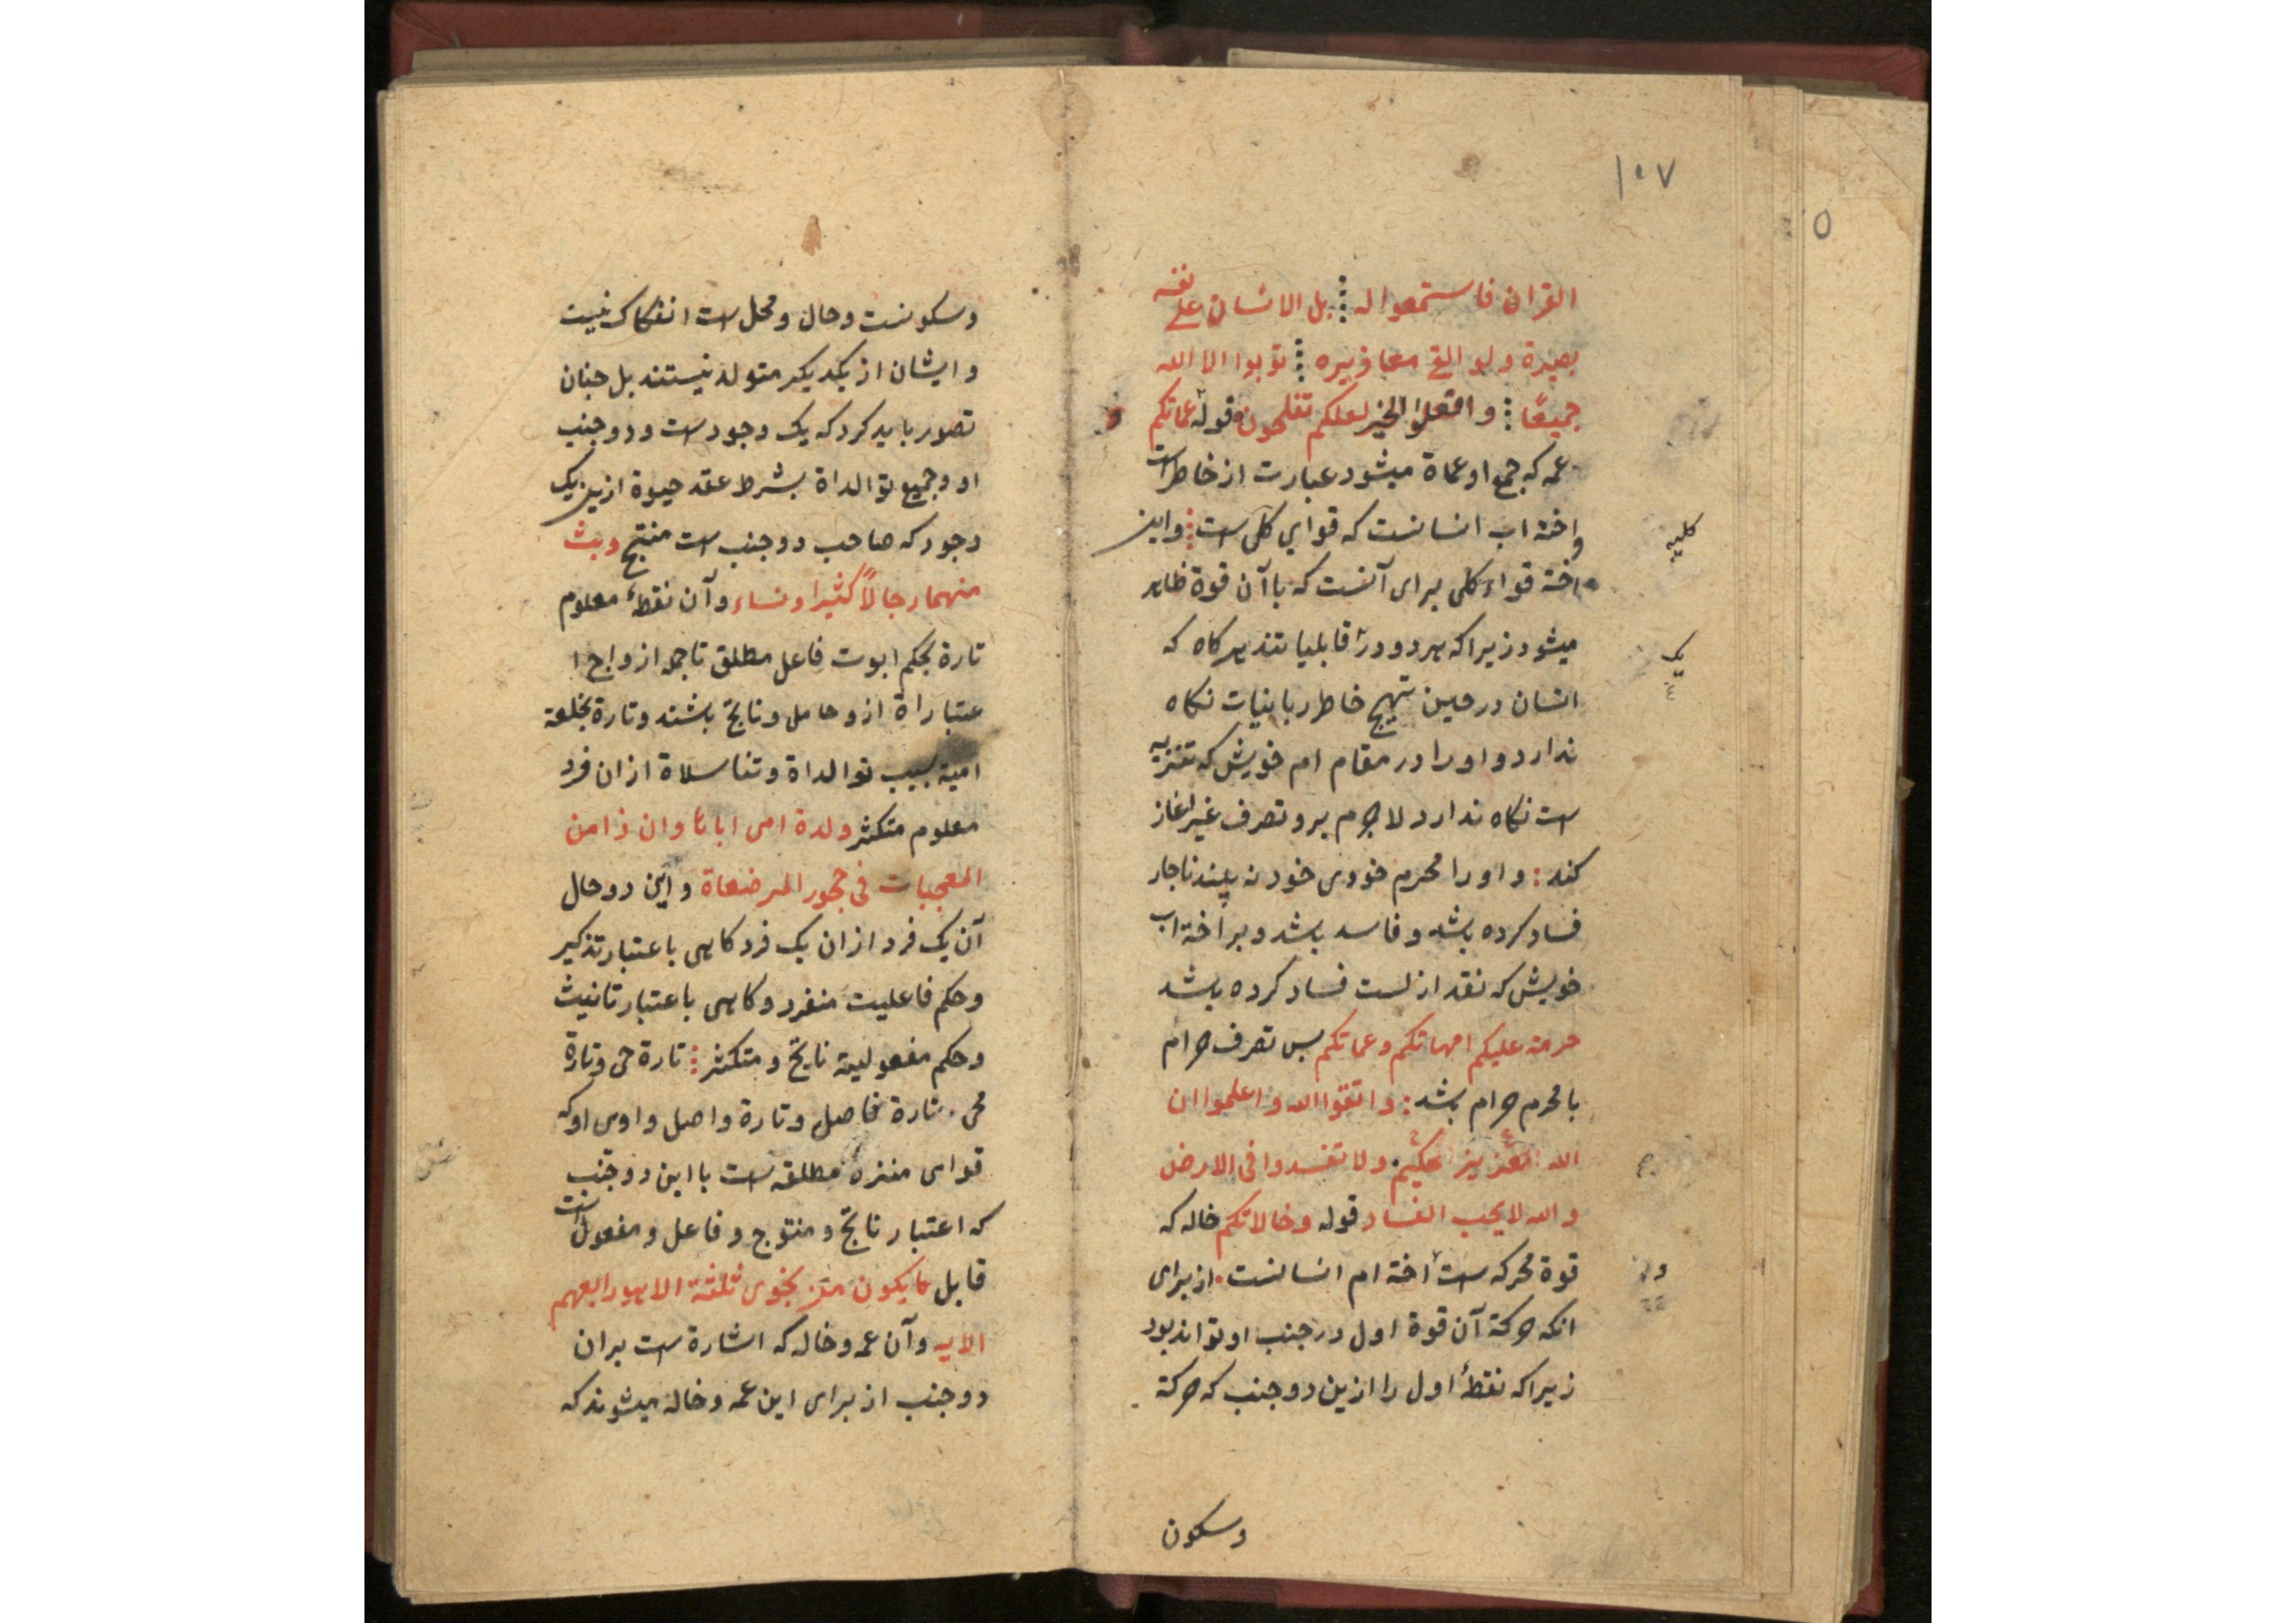 ۱۰۷
القران فاستمعوا له ⁞ بل الانسان علی نفسه
بصیرة ولو القی معاذیره ⁞ توبوا الا الله
جمیعًا ⁞ وافعلوا الخیر لعلکم تفلحون قوله عماتکم
عمه که جمع او عماة میشود عبارت از خاطرات
واخته اب انسانست که قوای کلی است ⁞ واین
اخته قواء کلی برای آنست که باآن قوة ظاهر
میشود زیراکه هر دو در قابلیاتند هرکاه که
انسان در حین تهیج خاطر ربانیات نکاه
ندارد و اورا در مقام ام خویش که تنزیه
است نکاه ندارد لا جرم برو تصرف غیر اغاز
کند : و اورا محرم خودی خود نه بیند ناجار
فساد کرده باشد و فاسد باشد و بر اخته اب
خویش که نقد ازلست فساد کرده باشد
حرمة علیکم امهاتکم وعماتکم پس تصرف حرام
با محرم حرام باشد : واتقوا الله واعلموا ان
الله عزیز حکیم ولا تفسدوا فی الارض
والله لا یحب الفساد قوله وخالاتکم خاله که
قوة محرکه است اخته ام انسانست . از برای
انکه حرکة آن قوة اول در جنب او تواند بود
زیراکه نقطهٔ اول را ازین دو جنب که حرکة
وسکون
کلیه
یک
وسکونست وحال ومحل است انفکاک نیست
وایشان از یکدیکر متولد نیستند بل جنان
تصور باید کرد که یک وجود است و دو جنب
او وجمیع توالداة بشرط عقد حیوة ازین یک
وجود که صاحب دو جنب است منتج وبث
منهما رجالاً کثیرا ونساء وآن نقطهٔ معلوم
تارة بحکم ابوت فاعل مطلق تا جمله ازواج ا
عتباراة ازو حامل وناتج باشند وتارة بخلعة
امیة بسبب توالداة وتناسلاة ازان فرد
معلوم متکثر ولدة امی اباها وان ذا من
العجیبات فی حجور المرضعاة واین دو حال
آن یک فرد ازان یک فرد کاهی باعتبار تذکیر
وحکم فاعلیت منفرد وکاهی باعتبار تانیث
وحکم مفعولیة ناتج ومتکثر ⁞ تارة حی وتارة
محی . تارة فاصل وتارة واصل واوی اوکه
قوای منزه مطلقه است با این دو جنب
که اعتبار ناتج ومنتوج وفاعل ومفعول است
قابل ما یکون من نجوی ثلثة الا هو رابعهم
الایه وآن عمه وخاله که اشارة است بران
دو جنب از برای این عمه وخاله میشوند که